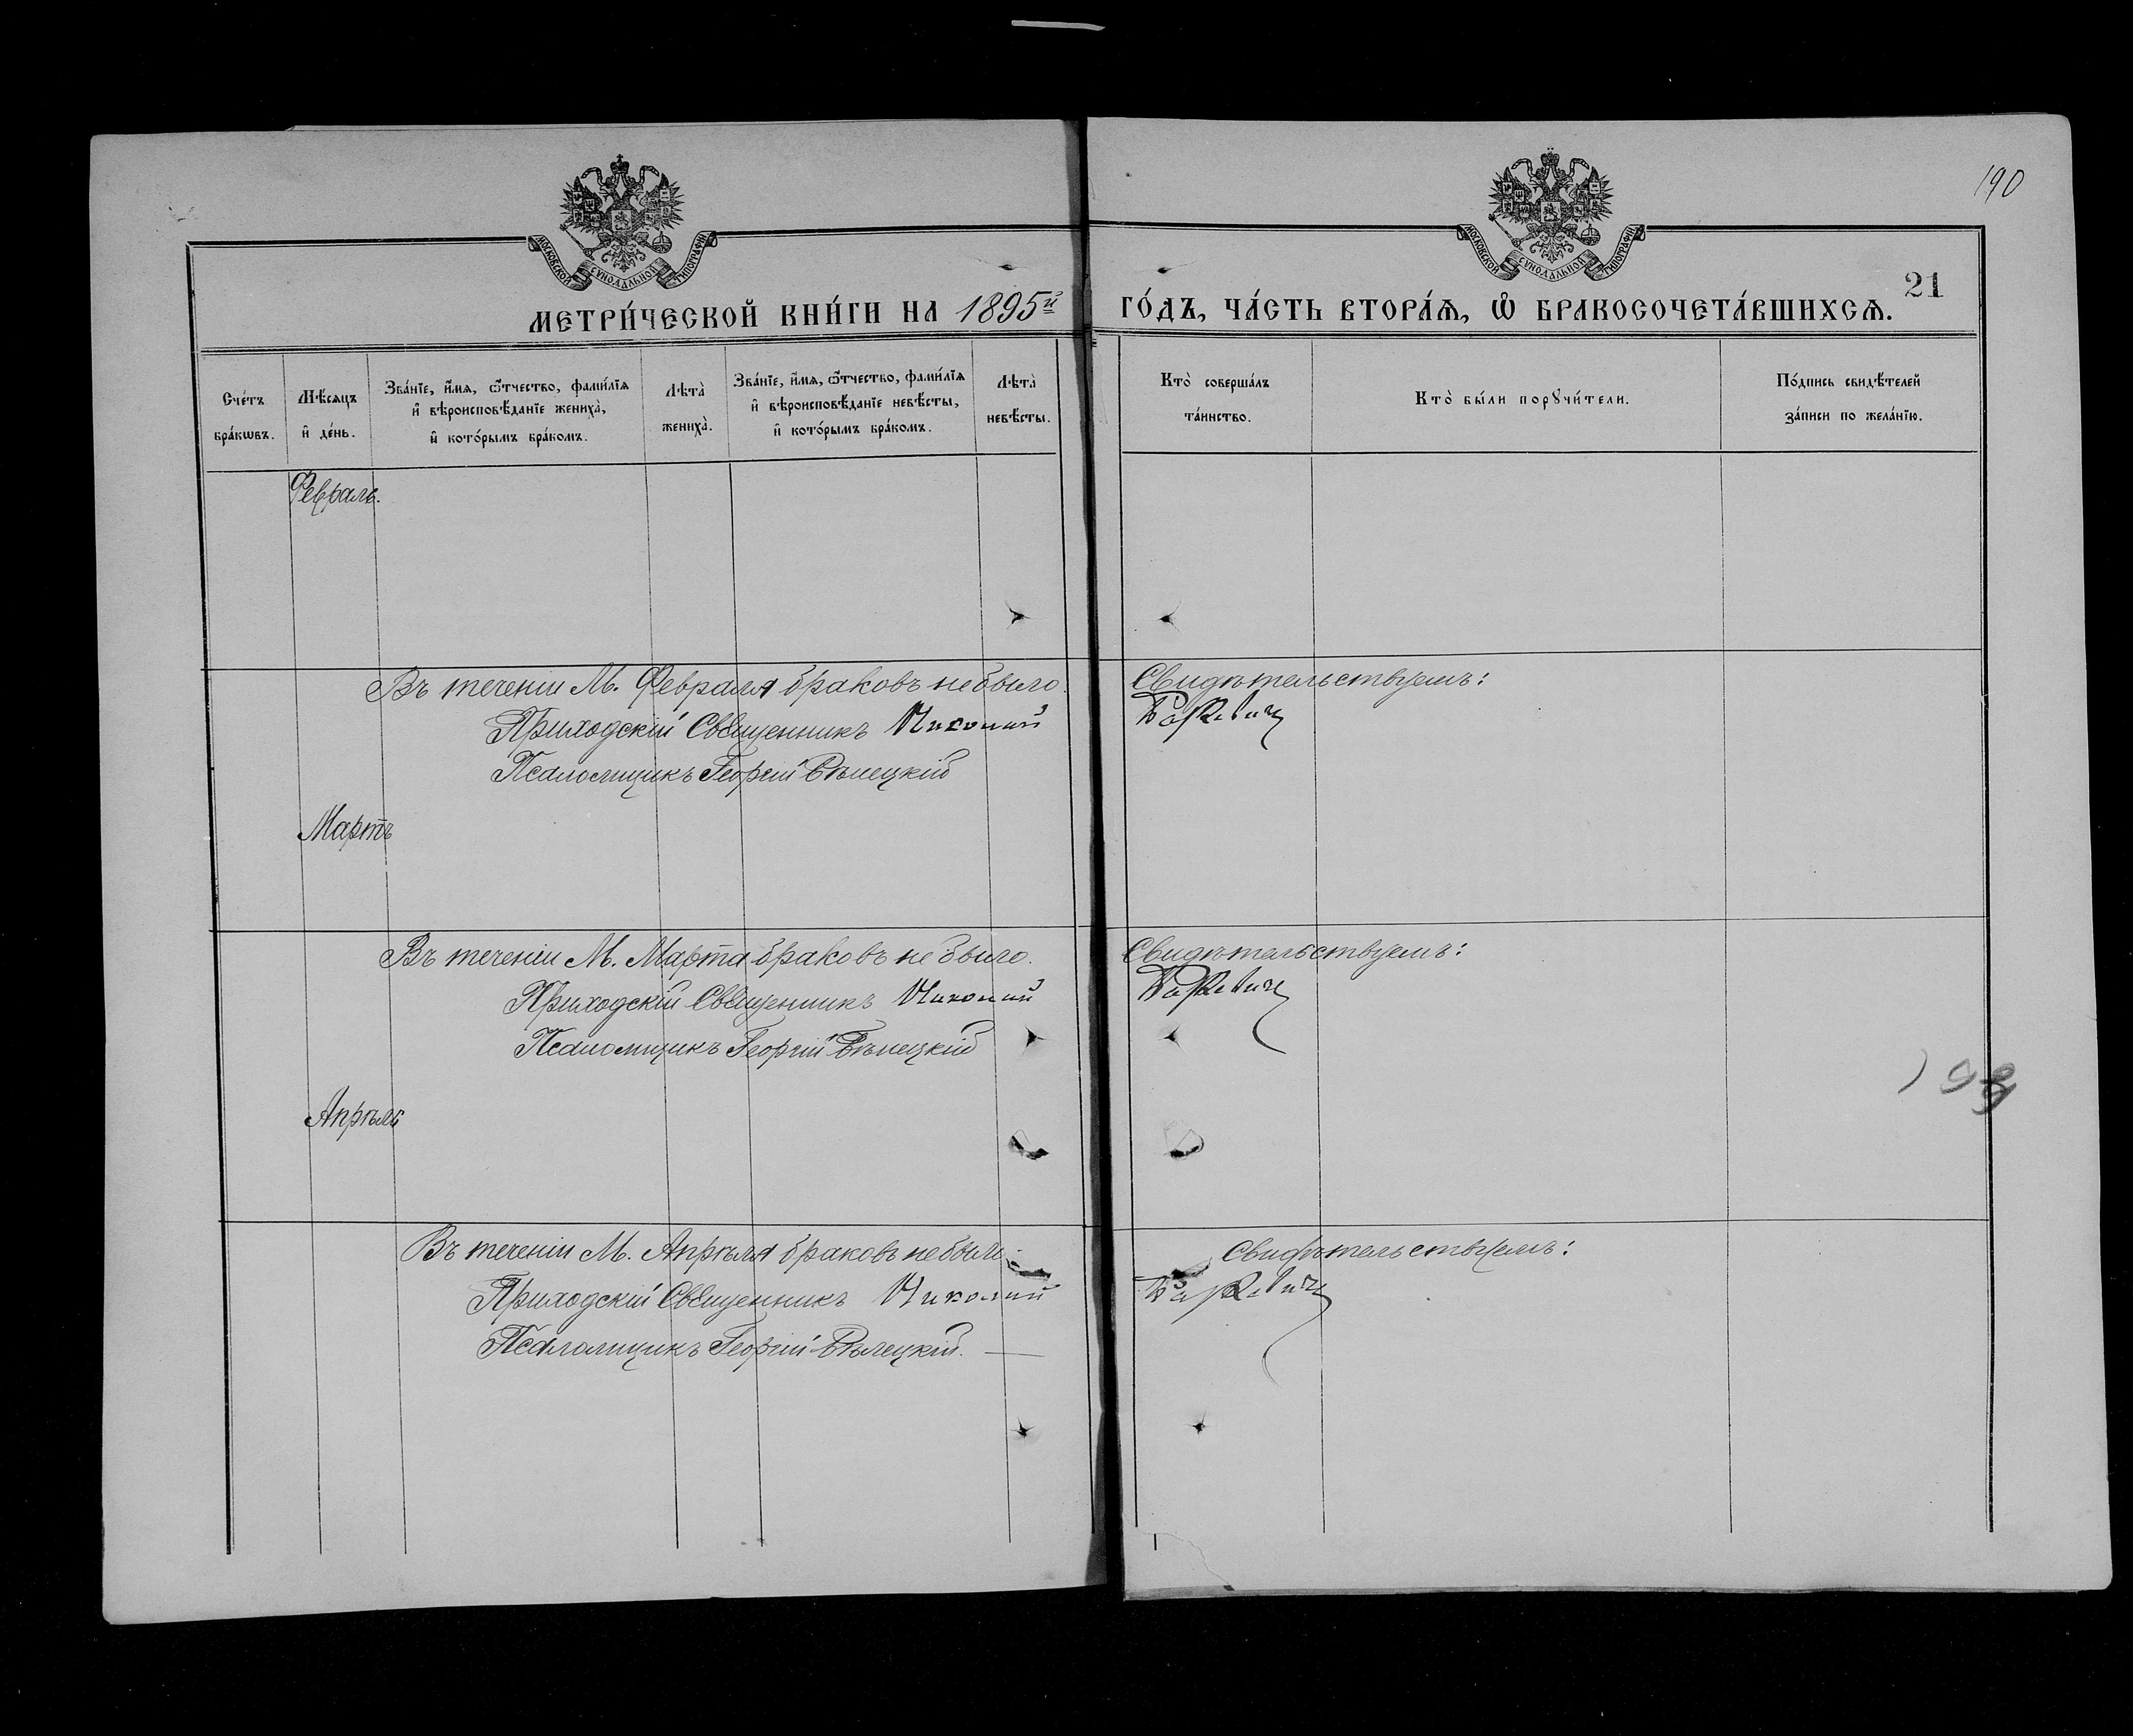 190
МОСКОВСКОЙ СѴНОДАЛЬНОЙ ТИПОГРАФІИ
МОСКОВСКОЙ СѴНОДАЛЬНОЙ ТИПОГРАФІИ
21
МЕТРИ́ЧЕСКОЙ КНИ́ГИ НА 1895й ГО́ДЪ, ЧА́СТЬ ВТОРА́Ѧ, Ѽ БРАКОСОЧЕТА́ВШИХСѦ.
Сче́тъ бра́кѡвъ.
Мѣ́сяцъ и҆ де́нь.
Зва́нїе, и҆́мѧ, ѻ҆́тчество, фами́лїѧ и҆ вѣроисповѣ́данїе жениха̀, и҆ кото́рымъ бра́комъ.
Лѣта̀ жениха̀.
Зва́нїе, и҆́мѧ, ѻ҆́тчество, фами́лїѧ и҆ вѣроисповѣ́данїе невѣ́сты, и҆ кото́рымъ бра́комъ.
Лѣта̀ невѣ́сты.
Кто̀ соверша́лъ та́инство.
Кто̀ бы́ли порꙋчи́тели.
По́дпись свидѣ́телей за́писи по жела́нїю.
Февраль.
Въ теченіи М. Февраля браковъ не было. Свидѣтельствуемъ:
Приходскій Священникъ Николай
Псаломщикъ Георгій Бѣлецкій
Мартъ
Въ теченіи М. Марта браковъ не было. Свидѣтельствуемъ:
Приходскій Священникъ Николай
Псаломщикъ Георгій Бѣлецкій
Апрѣль
Въ теченіи М. Апрѣля браковъ не было. Свидѣтельствуемъ:
Приходскій Священникъ Николай
Псаломщикъ Георгій Бѣлецкій.